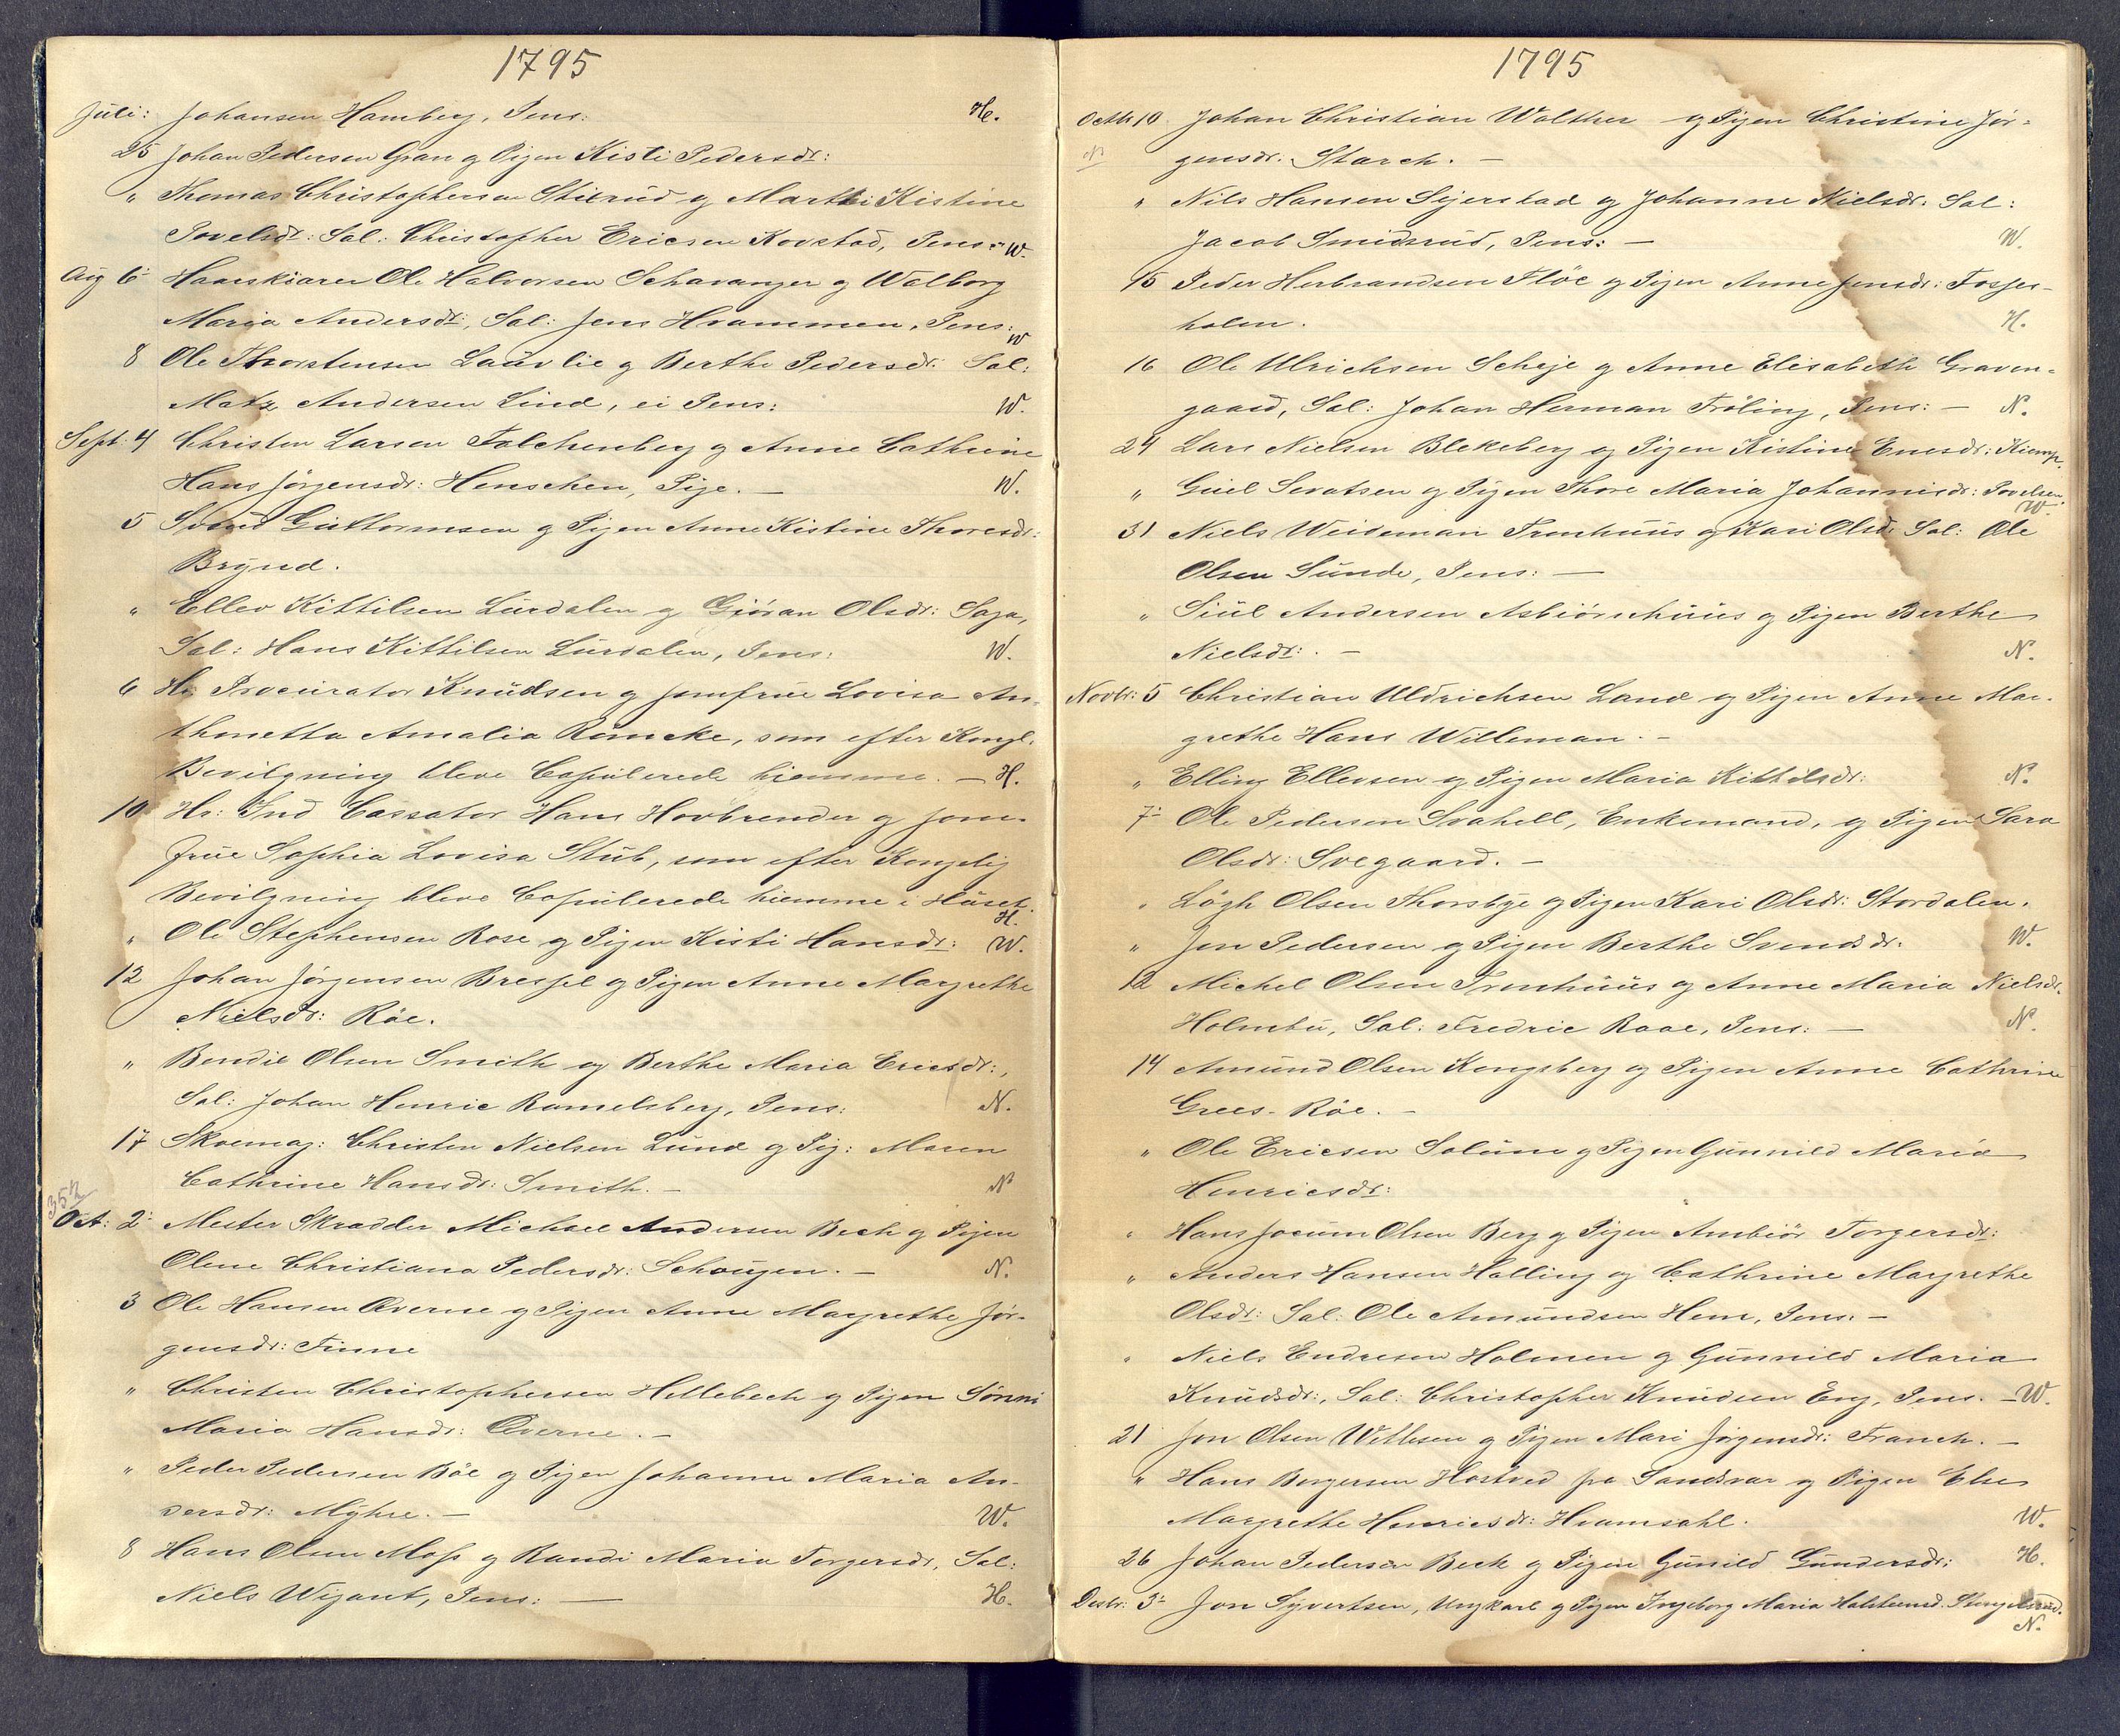 1795
Juli: Johansen Hamberg, Pens: H.
25 Johan Pedersen Gran og Pigen Kisti Pedersdr:
" Thomas Christophersen Stierud og Marthi Kistine
Povelsdr: Sal: Christopher Ericsen Kovstad, Pens: W.
Aug 6 Ole Halvorsen Schavanger og Walborg
Maria Andersdr:, Sal: Jens Hvammen, Pens: W
8 Ole Thorstensen Laurlie og Berthe Pedersdr: Sal:
Matz Andersen Lind, ei Pens: W.
Sept: 4 Christen Larsen Falchenberg og Anne Cathrine
Hans Jörgensdr: Henschen, Pige. — W.
5 Svend Guttormsen og Pigen Anne Kistine Thoresdr:
Brynd.
" Ellev Kittilsen Lurdalen og Gjöran Olsdr: Saga,
Sal: Hans Kittilsen Lurdalen, Pens: W.
6 Hr. Procurator Knudsen og Jomfrue Lovisa An-
thonetta Amalia Romcke, som efter Kongl.
Bevilgning bleve Copulerede hiemme. — H.
10 Hr: Ind Cassator Hans Hovbrender og Jom-
frue Sophia Lovisa Stub, som efter Kongelig
Bevilgning bleve Copulerede hiemme i Huset. H.
" Ole Stephensen Rose og Pigen Kisti Hansdr: W.
12 Johan Jörgensen Bressel og Pigen Anne Margrethe
Nielsdr: Röe.
" Bendic Olsen Smith og Berthe Maria Ericsdr:,
Sal: Johan Henric Ramelsberg, Pens: N.
17 Skoemag: Christen Nielsen Lund og Pig: Maren
Cathrine Hansdr: Smith. — N
Oct: 2 Mester Skradder Michael Andersen Bech og Pigen
Olene Christiana Pedersdr: Schougen. — N.
3 Ole Hansen Qverne og Pigen Anne Margrethe Jör-
gensdr: Finne
" Christen Christophersen Hellebech og Pigen Sönni
Maria Hansdr: Qverne. —
" Peder Pedersen Böe og Pigen Johanne Maria An-
dersdr: Myhre. — W.
8 Hans Olsen Moss og Randi Maria Torgersdr, Sal:
Niels Wigant, Pens: — H.
1795
Octbr 10 Johan Christian Walther og Pigen Christine Jör-
N gensdr. Starch. —
" Nils Hansen Gejerstad og Johanne Nielsdr. Sal:
Jacob Smidsrud, Pens: — W.
15 Peder Herbrandsen Flöe og Pigen Anne Jensdr: Fosses-
holm. H.
16 Ole Ulrichsen Scheje og Anne Elisabeth Graven-
gaard, Sal: Johan Herman Fröling, Pens: — N.
24 Lars Nielsen Blekeberg og Pigen Kistine Enersdr: Kiemp.
" Giul Sevatsen og Pigen Thore Maria Johannisdr: Povelsen. W.
31 Niels Weideman Tronhuus og Kari Olsdr Sal: Ole
Olsen Sunde, Pens: —
" Siul Andersen Asbiörnhuus og Pigen Berthe
Nielsdr: — N.
Novbr: 5 Christian Uldrichsen Land og Pigen Anne Mar-
grethe Hans Willeman. —
" Elling Ellevsen og Pigen Maria Kittilsdr: N.
7 Ole Pedersen Svahell, Enkemand, og Pigen Sara
Olsdr: Svegaard. —
" Lögh Olsen Thorsbye og Pigen Kari Olsdr: Stordalen.
" Jon Pedersen og Pigen Berthe Svendsdr. W.
12 Michel Olsen Tronhuus og Anne Maria Nielsdr.
Holmbu, Sal: Fredric Raae, Pens: — N.
14 Amund Olsen Kongsberg og Pigen Anne Cathrine
Grees- Röe. —
" Ole Ericsen Solum og Pigen Gunnild Maria
Henricsdr:
" Hans Jocum Olsen Berg og Pigen Ambiör Torgersdr:
" Anders Hansen Halling og Cathrine Margrethe
Olsdr: Sal: Ole Amundsen Hem, Pens: —
" Niels Endresen Holmen og Gunnild Maria
Knudsdr:, Sal: Christopher Knudsen Eng, Pens. — W.
21 Jon Olsen Willesen og Pigen Mari Jörgensdr: Franch. —
" Hans Borgersen Hostved fra Sandsvar og Pigen Else
Margrethe Henricsdr: Hvamsahl. W.
26 Johan Pedersen Bech og Pigen Gunild Gundersdr: H.
Decbr: 3 Jon Syvertsen, Ungkarl og Pigen Ingeborg Maria N.